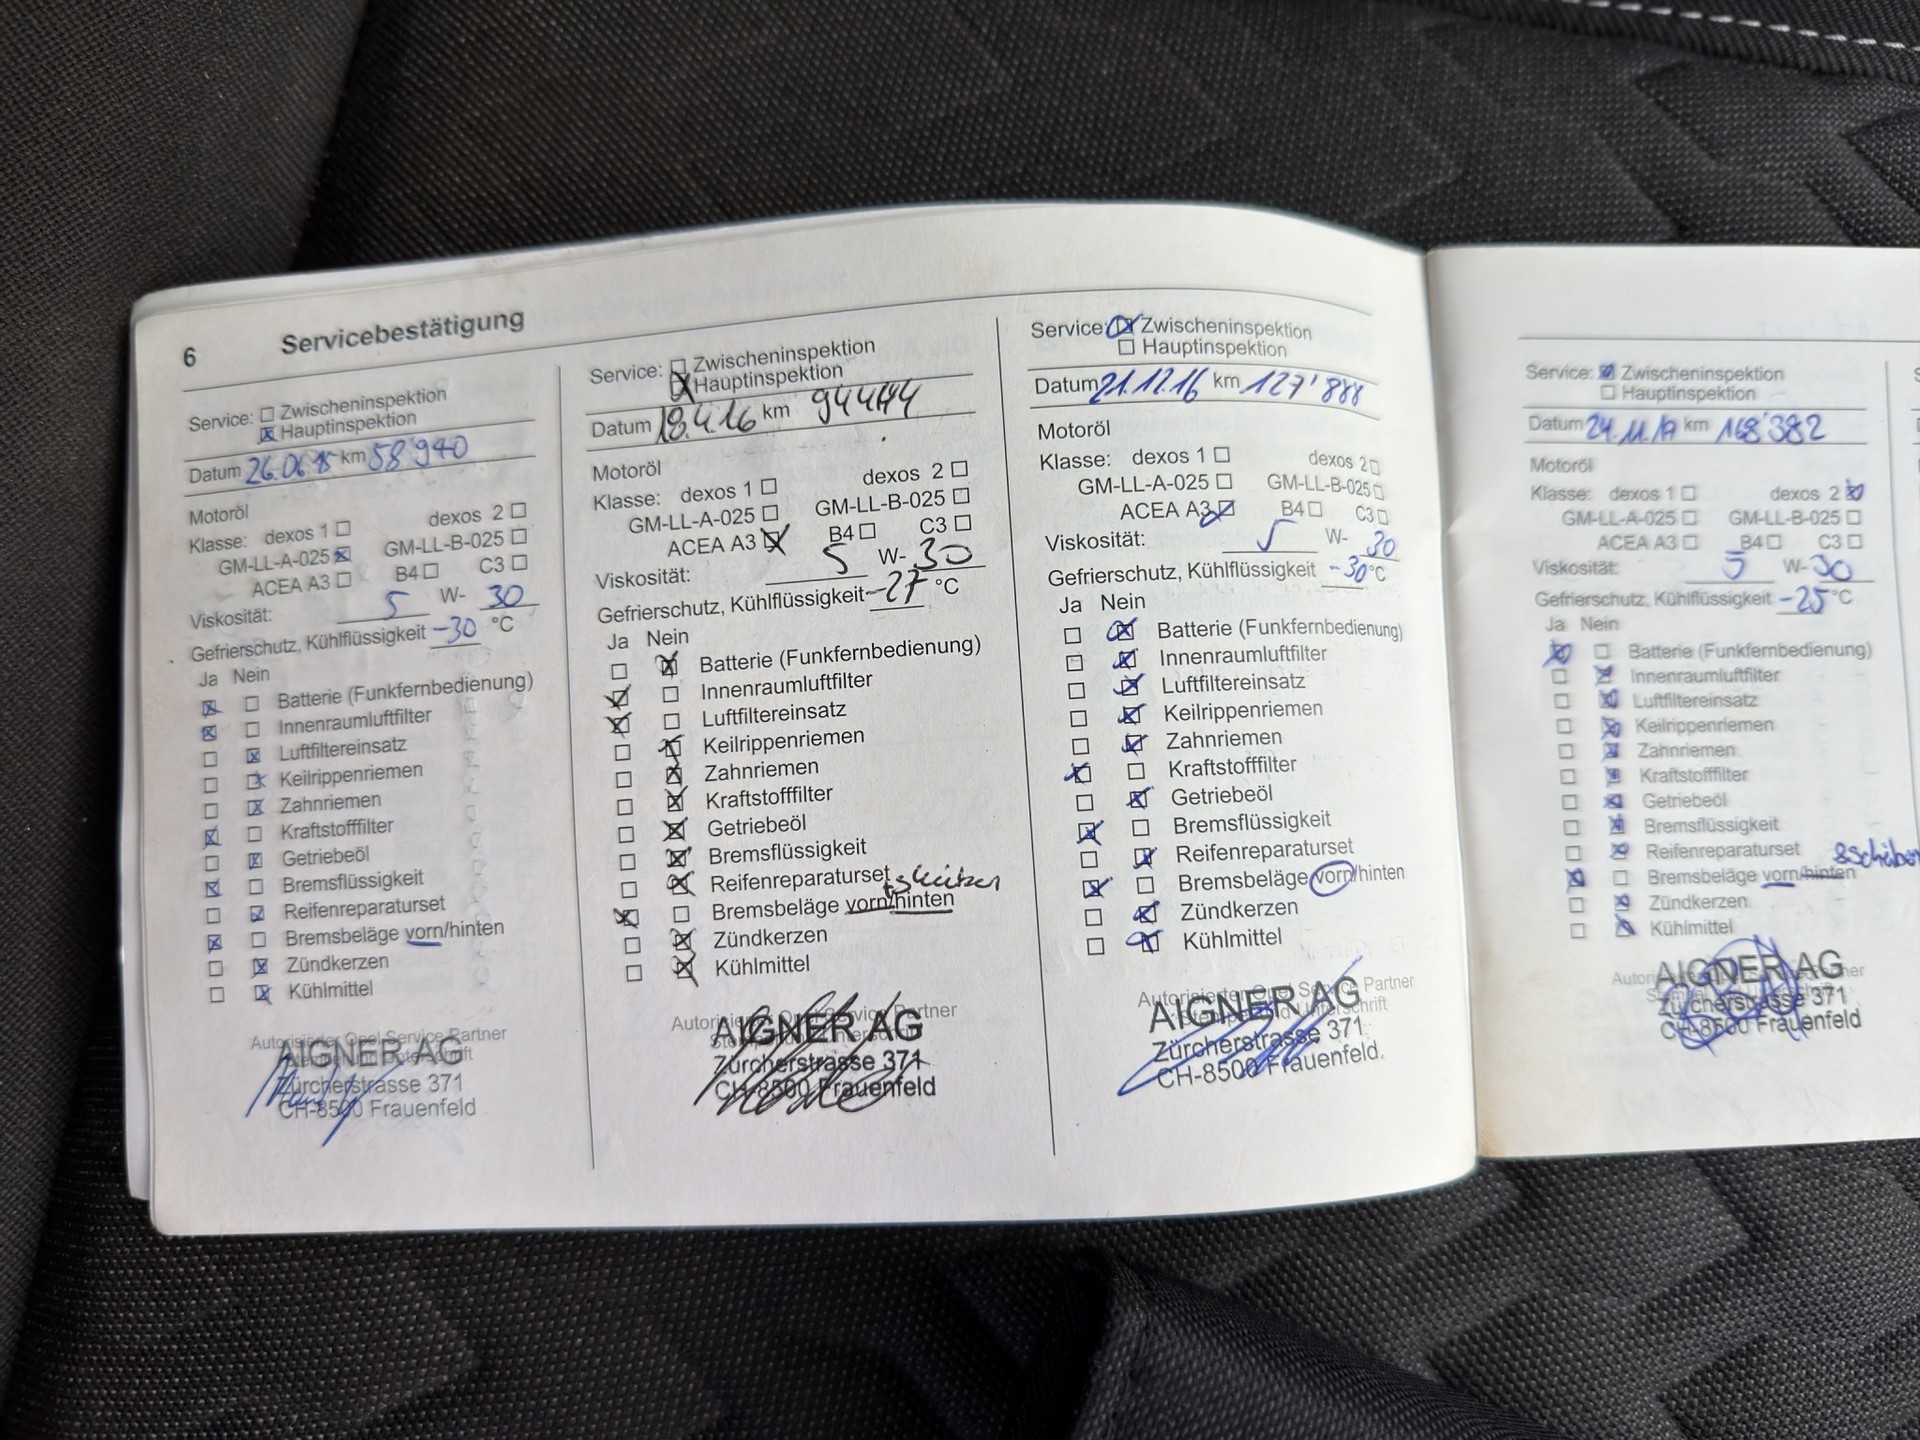 6 Servicebestätigung
Service: Zwischeninspektion
Hauptinspektion
Datum 26.06.15 km 58'940
Motoröl
Klasse: dexos 1 dexos 2
GM-LL-A-025 GM-LL-B-025
ACEA A3 B4 C3
Viskosität: 5 W- 30
Gefrierschutz, Kühlflüssigkeit -30 °C
Ja Nein
Batterie (Funkfernbedienung)
Innenraumluftfilter
Luftfiltereinsatz
Keilrippenriemen
Zahnriemen
Kraftstofffilter
Getriebeöl
Bremsflüssigkeit
Reifenreparaturset
Bremsbeläge vorn/hinten
Zündkerzen
Kühlmittel
Autorisierter Opel Service Partner
Stempel und Unterschrift
AIGNER AG
Zürcherstrasse 371
CH-8500 Frauenfeld
Service: Zwischeninspektion
Hauptinspektion
Datum 18.4.16 km
Motoröl
Klasse: dexos 1 dexos 2
GM-LL-A-025 GM-LL-B-025
ACEA A3 B4 C3
Viskosität: 5 W- 30
Gefrierschutz, Kühlflüssigkeit -27 °C
Ja Nein
Batterie (Funkfernbedienung)
Innenraumluftfilter
Luftfiltereinsatz
Keilrippenriemen
Zahnriemen
Kraftstofffilter
Getriebeöl
Bremsflüssigkeit
Reifenreparaturset
Bremsbeläge vorn/hinten
Zündkerzen
Kühlmittel
Autorisierter Opel Service Partner
Stempel und Unterschrift
AIGNER AG
Zürcherstrasse 371
CH-8500 Frauenfeld
Service: Zwischeninspektion
Hauptinspektion
Datum 21.12.16 km 127'888
Motoröl
Klasse: dexos 1 dexos 2
GM-LL-A-025 GM-LL-B-025
ACEA A3 B4 C3
Viskosität: 5 W- 30
Gefrierschutz, Kühlflüssigkeit -30 °C
Ja Nein
Batterie (Funkfernbedienung)
Innenraumluftfilter
Luftfiltereinsatz
Keilrippenriemen
Zahnriemen
Kraftstofffilter
Getriebeöl
Bremsflüssigkeit
Reifenreparaturset
Bremsbeläge vorn/hinten
Zündkerzen
Kühlmittel
Autorisierter Opel Service Partner
Stempel und Unterschrift
AIGNER AG
Zürcherstrasse 371
CH-8500 Frauenfeld.
Service: Zwischeninspektion
Hauptinspektion
Datum 24.11.17 km 168'382
Motoröl
Klasse: dexos 1 dexos 2
GM-LL-A-025 GM-LL-B-025
ACEA A3 B4 C3
Viskosität: 5 W- 30
Gefrierschutz, Kühlflüssigkeit -25 °C
Ja Nein
Batterie (Funkfernbedienung)
Innenraumluftfilter
Luftfiltereinsatz
Keilrippenriemen
Zahnriemen
Kraftstofffilter
Getriebeöl
Bremsflüssigkeit
Reifenreparaturset
Bremsbeläge vorn/hinten
Zündkerzen
Kühlmittel
AIGNER AG
Zürcherstrasse 371
CH-8500 Frauenfeld